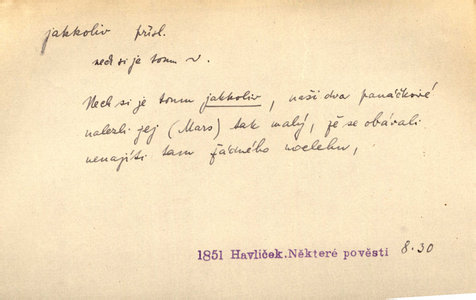 jakkoliv přísl.
nech si je tomu v.
Nech si je tomu jakkoliv, naši dva panáčkové
nalezli jej (Mars) tak malý, že se obávali
nenajíti tam žádného noclehu,
1851 Havlíček.Některé pověsti 8·30